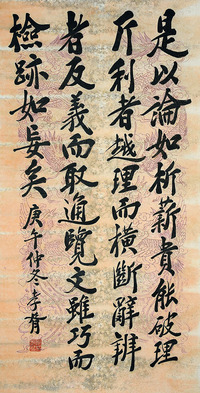 是以論如析薪貴能破理
斤利者越理而橫斷辭辨
者反義而取通覽文雖巧而
檢跡如妄矣 庚午仲冬李胥